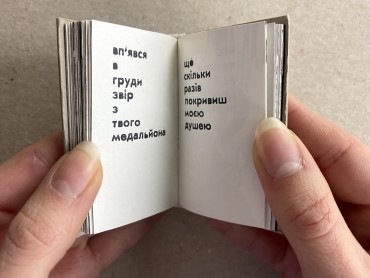 вп'явся
в
груди
звір
з
твого
медальйона
ще
скільки
разів
покривиш
моєю
душею